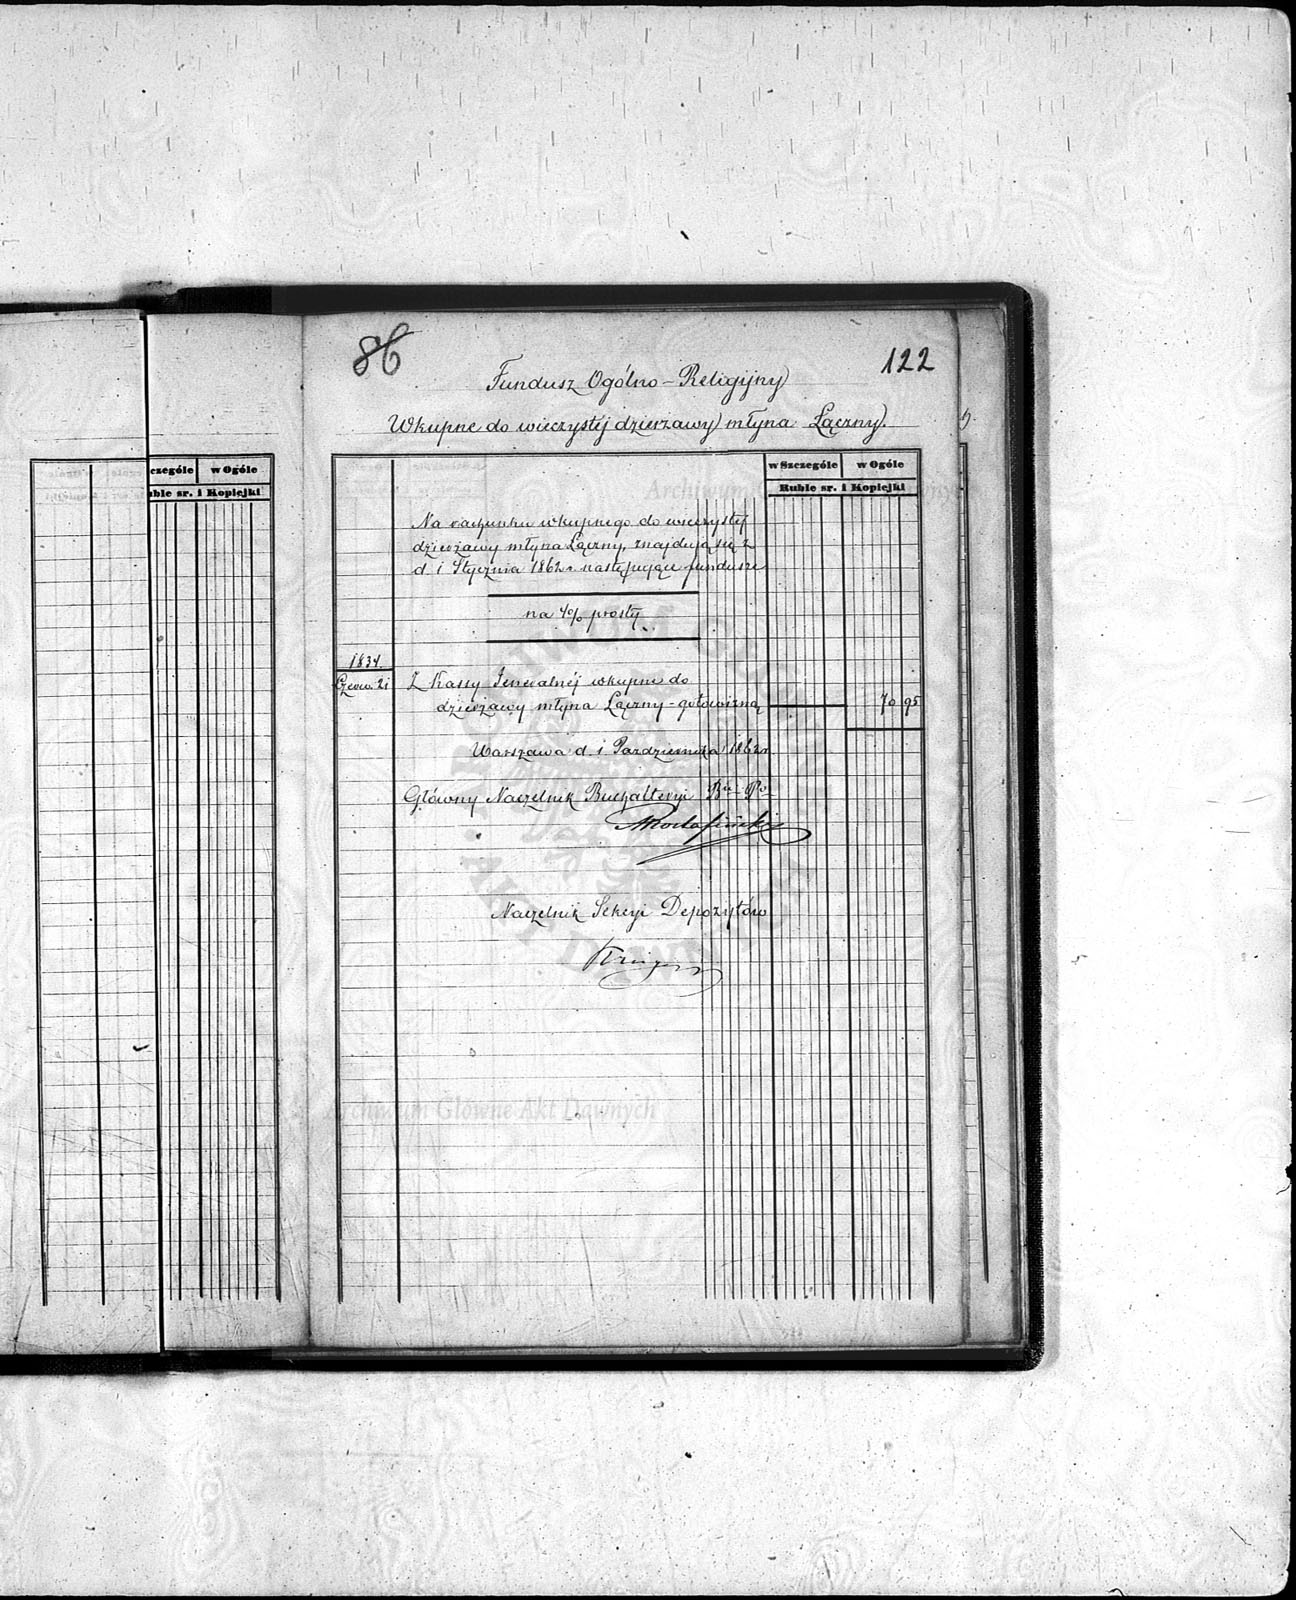 86
122
Fundusz Ogólno-Religijny
Wkupne do wieczystéj dzierżawy młyna Łączny.
czególe w Ogóle
uble sr. i Kopiejki
w Szczególe w Ogóle
Ruble sr. i Kopiejki
Na rachunku wkupnego do wieczystéj
dzierżawy młyna Łączny, znajdują się z
d. 1 Stycznia 1862 r. następujące fundusze
na 4% prosty
1834.
Czerw. 21 Z Kassy Jeneralnéj wkupne do
dzierżawy młyna Łączny - gotowizną 70 95
Warszawa d. 1 Października 1862 r.
Główny Naczelnik Buchalteryi Bu Po
Naczelnik Sekcyi Depozytów
Archiwum Główne Akt Dawnych